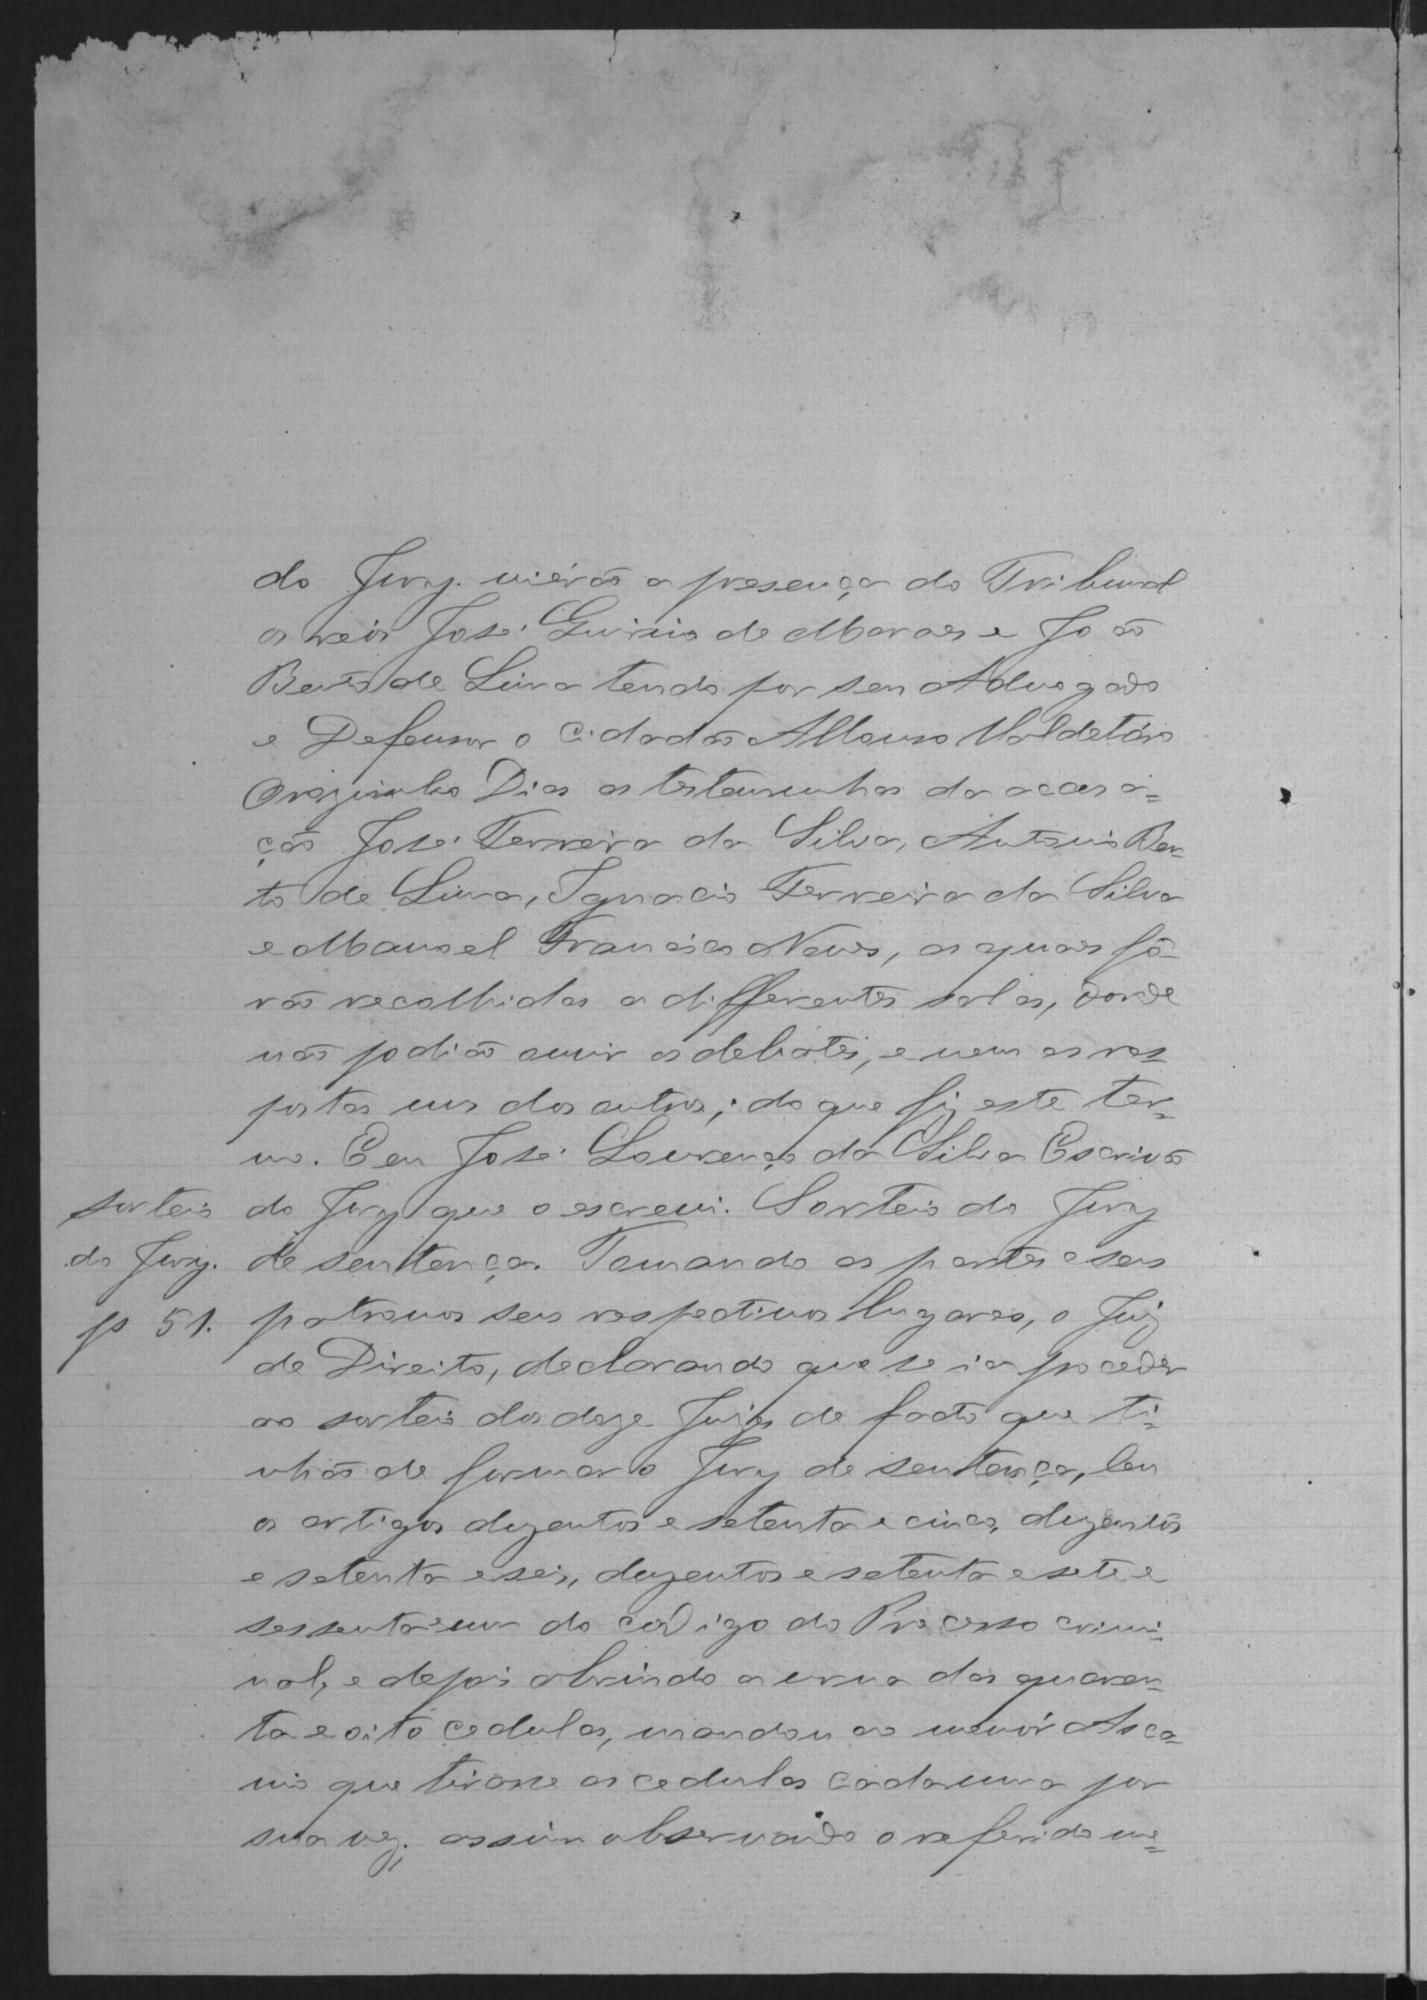 do Jury. viérão a presença do Tribunal
os réos José de Moraes e João
Bento de Lima tendo por seu Advogado
e Defensor o cidadão Affonso Valdetáro
Dias as testemunhas da accusa=
ção José Ferreira da Silva, Antonio Ben-
to de Lima, Ignacio Ferreira da Silva
e Manoel Francisco Neves, as quaes fô-
rão recolhidas a differentes salas, donde
não podião ouvir os debates, e nem as res-
postas uns dos outros; do que fiz este ter-
mo. E eu José Lourenço da Silva Escrivão
do Jury que o escrevi. Sorteio do Jury
sorteio
do Jury.
fs 51.
de sentença. Tomando as partes e seus
patronos seus respectivos lugares, o Juiz
de Direito, declarando que se ia proceder
ao sorteio dos doze Juizes de facto que ti=
nhão de formar o Jury de sentença, leu
os artigos duzentos e setenta e cinco, duzentos
e setenta e seis, duzentos e setenta e sete e
sessenta e um do codigo do Processo crimi-
nal, e depois abrindo a urna das quaren-
ta e oito cedulas, mandou ao menór Asca=
nio que tirasse as cedulas cada uma por
sua vez; assim observando o referido me=